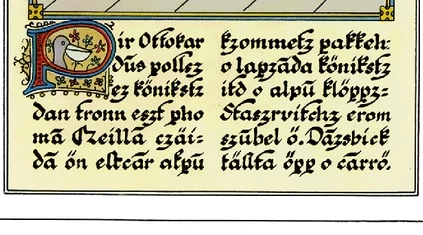 Pir Ottokar
dūs pollsz
ez könikstz
dan tronn eszt pho
mā Czeillā czäi=
dā ön eltcār alpū
kzommetz pakkeh=
o lapzāda könikstz
itd o alpū klöppz=
Staszrvitchz erom
szūbel ö. Dāzsbick
fällta öpp o cārrö.